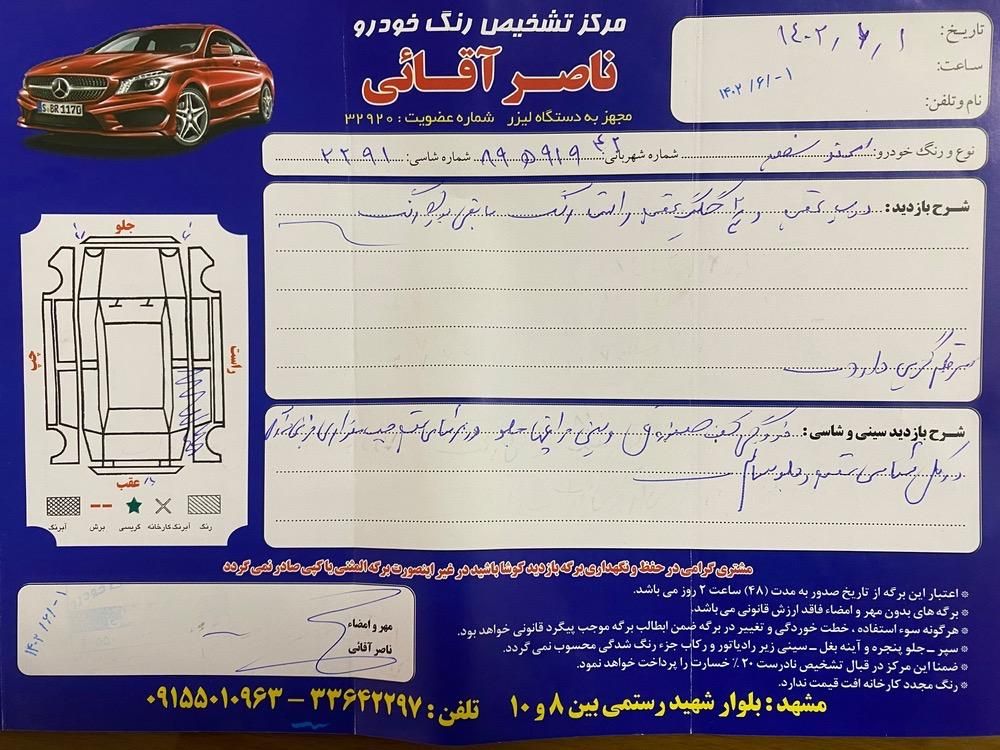 مرکز تشخیص رنگ خودرو
ناصر آقائی
مجهز به دستگاه لیزر شماره عضویت : ۳۲۹۲۰
تاریخ: ۱۴۰۲/۶/۱
ساعت:
۱۴۰۲/۶/۰۱
نام و تلفن:
نوع و رنگ خودرو: سفید شماره شهربانی: ۴۲ ۹۱۹ ۸۹ شماره شاسی: ۲۲۹۱
شرح بازدید: درب عقب و گلگیر عقب راست رنگ مابقی بدون رنگ
دارد
شرح بازدید سینی و شاسی:
جلو
چپ
راست
عقب
رنگ آبرنگ کارخانه گریسی برش آبرنگ
مشتری گرامی در حفظ و نگهداری برگه بازدید کوشا باشید در غیر اینصورت برگه المثنی یا کپی صادر نمی گردد
* اعتبار این برگه از تاریخ صدور به مدت (۴۸) ساعت ۲ روز می باشد.
* برگه های بدون مهر و امضاء فاقد ارزش قانونی می باشد.
* هرگونه سوء استفاده ، خطت خوردگی و تغییر در برگه ضمن ابطالب برگه موجب پیگرد قانونی خواهد بود.
* سپر ـ جلو پنجره و آینه بغل ـ سینی زیر رادیاتور و رکاب جزء رنگ شدگی محسوب نمی گردد.
* ضمنا این مرکز در قبال تشخیص نادرست ۲۰٪ خسارت را پرداخت خواهد نمود.
* رنگ مجدد کارخانه افت قیمت ندارد.
مهر و امضاء
ناصر آقائی
۱۴۰۲/۶/۰۱
مشهد : بلوار شهید رستمی بین ۸ و ۱۰ تلفن : ۳۳۶۴۲۲۹۷ – ۰۹۱۵۵۰۱۰۹۶۳
S·BR 1170